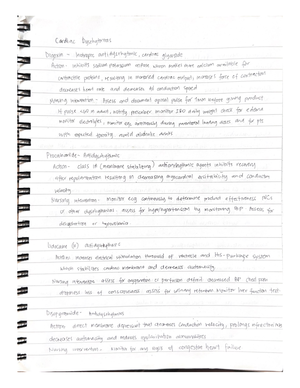 Cardiac Dysrhythmias
Digoxin - Inotropic antidysrhythmic, cardiac glycoside
Action - inhibits sodium potassium ATPase which makes more calcium available for
contractile proteins, resulting in increased cardiac output, increases force of contraction
decreases heart rate and
Nursing intervention - Assess and document apical pulse for 1 min before giving product
if pulse <60 in adult, notify provider, monitor I&O daily weight check for edema
monitor electrolytes, monitor ECG continuously during parenteral loading doses and for pts
with suspected toxicity,
Procainamide - Antidysrhythmic
Action - class IA (membrane stabilizing) antidysrhythmic agents inhibits
after depolarization resulting in decreasing myocardial excitability and conduction
velocity
Nursing intervention - monitor ECG continuously to determine product effectiveness
or other dysrhythmias assess for by monitoring BP assess for
dehydration or hypovolemia
Lidocaine (IV) Antidysrhythmic
Action increases electrical stimulation threshold of ventricle and His-Purkinje system
which stabilizes cardiac membrane and decreases automaticity
Nursing intervention assess for decreased BP chest pain
assess for urinary retention monitor liver function test
Disopyramide - Antidysrhythmic
Action direct decreases conduction velocity, prolongs
decreases automaticity and
Nursing intervention - monitor for any signs of congestive heart failure